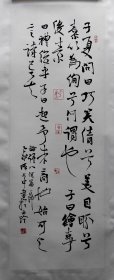 子夏問曰巧笑倩兮美目盼兮
素以為絢兮何謂也子曰繪事
後素
曰禮後乎子曰起予者商也始可與
言詩已矣